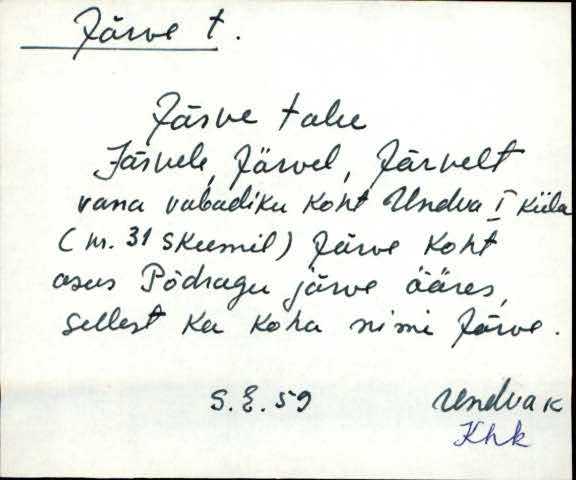 Järve t.
Järve talu
Järvele, Järvel, Järvelt
vana vabadiku koht Undva I küla
(nr. 31 skeemil) Järve koht
asus Põdragu järve ääres,
sellest ka koha nimi Järve.
S.E.59 Undva k
Khk